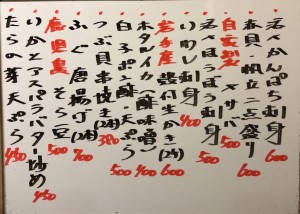 活〆かんぱち刺身 600
赤貝・帆立二点盛り 600
自家製 〆サバ 500
活〆ほうぼう刺身 500
いわし刺身 400
岩手産 殻付生かき(2ヶ) 600
ホタルイカ(酢味噌) 400
白子ポン酢・天ぷら 500
つぶ貝串焼き(2本) 380
ふぐ唐揚げ(2個) 700
鹿児島 そら豆 500
いかとアスパラバター炒め 450
たらの芽天ぷら 450